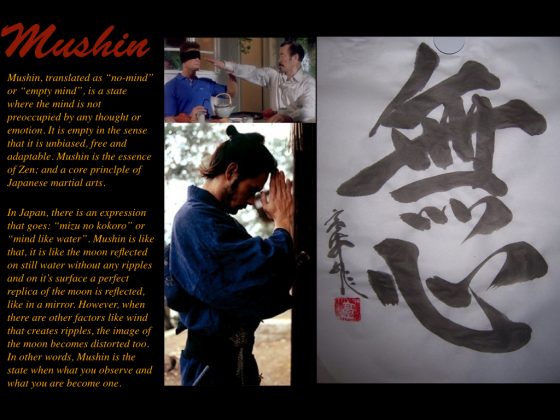 Mushin
Mushin, translated as “no-mind”
or “empty mind”, is a state
where the mind is not
preoccupied by any thought or
emotion. It is empty in the sense
that it is unbiased, free and
adaptable. Mushin is the essence
of Zen; and a core princlple of
Japanese martial arts.
In Japan, there is an expression
that goes: “mizu no kokoro” or
“mind like water”. Mushin is like
that, it is like the moon reflected
on still water without any ripples
and on it's surface a perfect
replica of the moon is reflected,
like in a mirror. However, when
there are other factors like wind
that creates ripples, the image of
the moon becomes distorted too.
In other words, Mushin is the
state when what you observe and
what you are become one.
無心